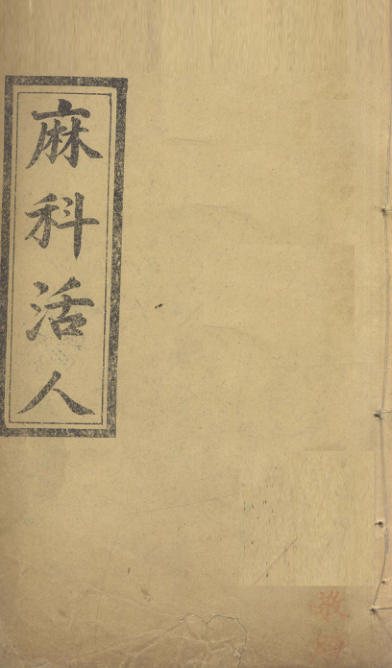 麻科活人